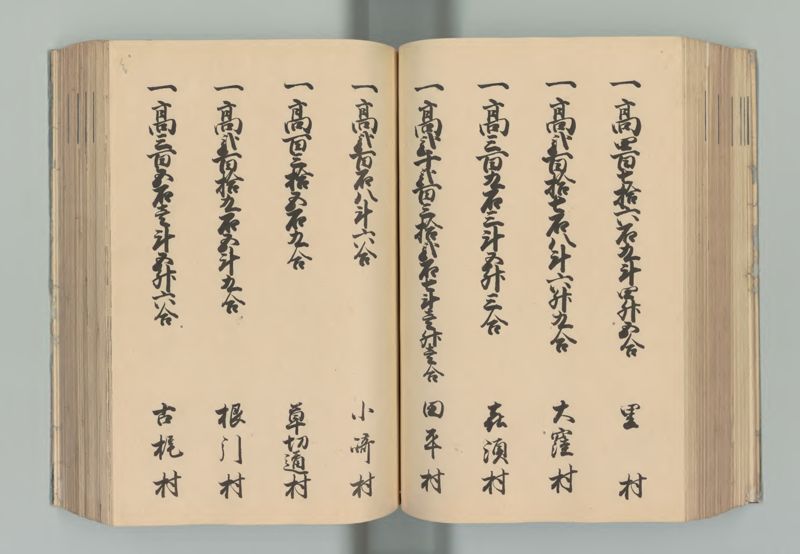 一高四百七拾六石五斗四升五合 里村
一高弐百拾七石八斗六升九合 大窪村
一高三百九石三斗五升三合 喜須村
一高弐千弐百三拾弐石七斗壱升壱合 田平村
一高弐百石八斗六合 小崎村
一高百三拾五石九合 草切通村
一高弐百拾九石五斗九合 根引村
一高三百五石壱斗五升六合 古梶村